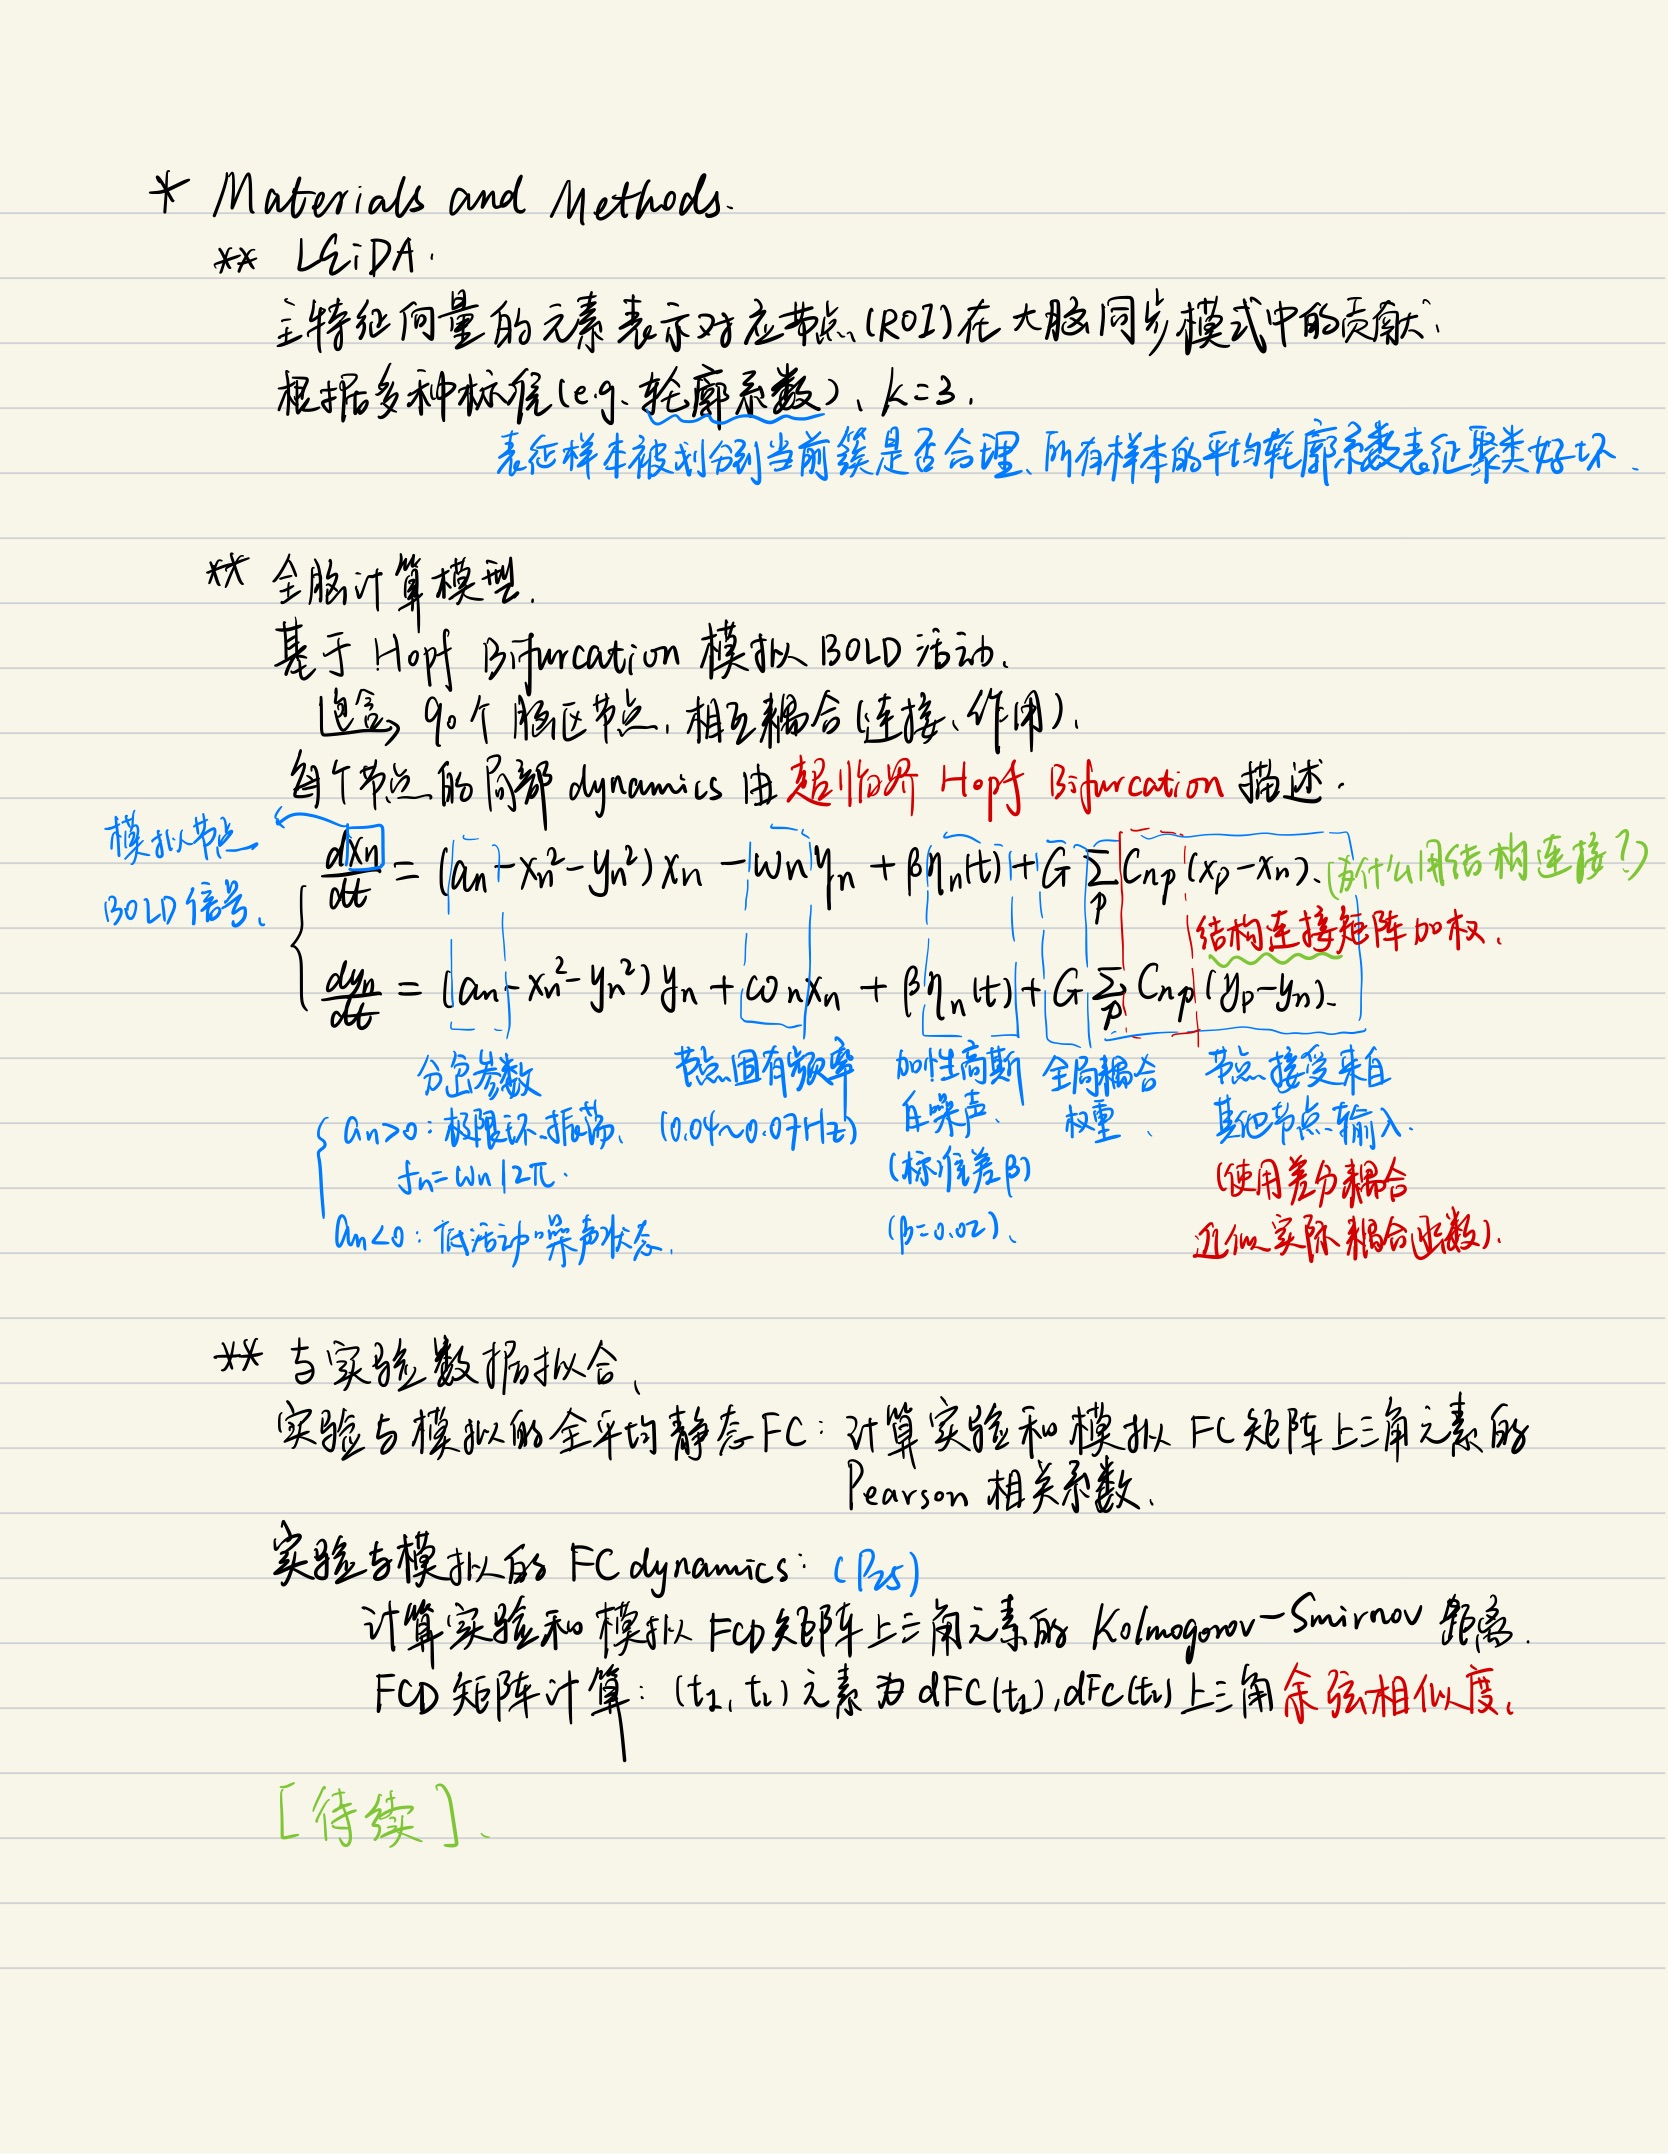 * Materials and Methods.
** LEiDA.
主特征向量的元素表示对应节点(ROI)在大脑同步模式中的贡献.
根据多种标准(e.g. 轮廓系数), k=3.
表征样本被划分到当前簇是否合理、所有样本的平均轮廓系数表征聚类好坏.
** 全脑计算模型.
基于 Hopf Bifurcation 模拟 BOLD 活动.
包含 90个脑区节点, 相互耦合(连接、作用).
每个节点的局部 dynamics 由超临界 Hopf Bifurcation 描述.
模拟节点
BOLD信号.
dxn/dt = (an-xn²-yn²)xn - ωnyn + βηn(t) + G∑p Cnp(xp-xn). (为什么用结构连接?)
结构连接矩阵加权.
dyn/dt = (an-xn²-yn²)yn + ωnxn + βηn(t) + G∑p Cnp(yp-yn).
分岔参数
an>0: 极限环振荡.
fn=ωn/2π.
an<0: 低活动噪声状态.
节点固有频率
(0.04~0.07Hz)
加性高斯
白噪声.
(标准差β)
(β=0.02).
全局耦合
权重.
节点接受来自
其他节点输入.
(使用差分耦合
近似实际耦合函数).
** 与实验数据拟合.
实验与模拟的全平均静态FC: 计算实验和模拟 FC矩阵上三角元素的
Pearson 相关系数.
实验与模拟的 FC dynamics: (P25)
计算实验和模拟 FCD矩阵上三角元素的 Kolmogorov-Smirnov 距离.
FCD矩阵计算: (t1, t2) 元素为 dFC(t1), dFC(t2) 上三角余弦相似度.
[待续].